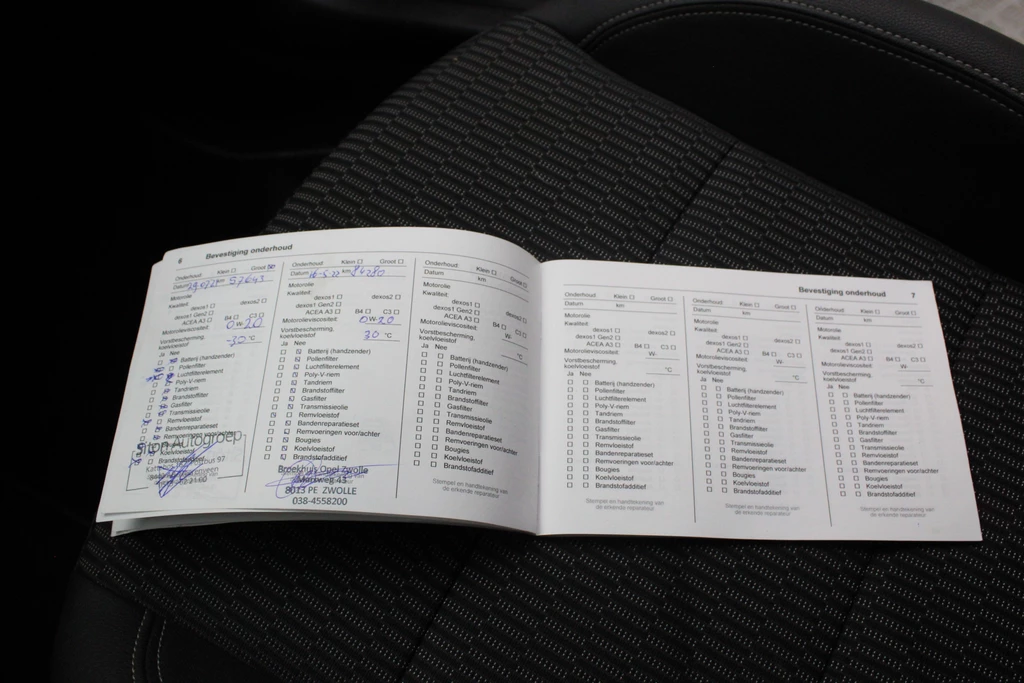 6 Bevestiging onderhoud
Onderhoud Klein ☐ Groot ☒
Datum km 57643
Motorolie
Kwaliteit:
dexos1 ☐ dexos2 ☐
dexos1 Gen2 ☐
ACEA A3 ☐ B4 ☐ C3 ☐
Motorolieviscositeit: 0 W- 20
Vorstbescherming,
koelvloeistof -30 °C
Ja Nee
Batterij (handzender)
Pollenfilter
Luchtfilterelement
Poly-V-riem
Tandriem
Brandstoffilter
Gasfilter
Transmissieolie
Remvloeistof
Bandenreparatieset
Remvoeringen voor/achter
Bougies
Koelvloeistof
Brandstofadditief
Autogroep
Onderhoud Klein ☐ Groot ☐
Datum 16-5-22 km 86280
Motorolie
Kwaliteit:
dexos1 ☐ dexos2 ☐
dexos1 Gen2 ☐
ACEA A3 ☐ B4 ☐ C3 ☐
Motorolieviscositeit: 0 W- 20
Vorstbescherming,
koelvloeistof 30 °C
Ja Nee
Batterij (handzender)
Pollenfilter
Luchtfilterelement
Poly-V-riem
Tandriem
Brandstoffilter
Gasfilter
Transmissieolie
Remvloeistof
Bandenreparatieset
Remvoeringen voor/achter
Bougies
Koelvloeistof
Brandstofadditief
Broekhuis Opel Zwolle
Marsweg 43
8013 PE ZWOLLE
038-4558200
Onderhoud Klein ☐ Groot ☐
Datum km
Motorolie
Kwaliteit:
dexos1 ☐ dexos2 ☐
dexos1 Gen2 ☐
ACEA A3 ☐ B4 ☐ C3 ☐
Motorolieviscositeit: W-
Vorstbescherming,
koelvloeistof °C
Ja Nee
☐ ☐ Batterij (handzender)
☐ ☐ Pollenfilter
☐ ☐ Luchtfilterelement
☐ ☐ Poly-V-riem
☐ ☐ Tandriem
☐ ☐ Brandstoffilter
☐ ☐ Gasfilter
☐ ☐ Transmissieolie
☐ ☐ Remvloeistof
☐ ☐ Bandenreparatieset
☐ ☐ Remvoeringen voor/achter
☐ ☐ Bougies
☐ ☐ Koelvloeistof
☐ ☐ Brandstofadditief
Stempel en handtekening van
de erkende reparateur
Bevestiging onderhoud 7
Onderhoud Klein ☐ Groot ☐
Datum km
Motorolie
Kwaliteit:
dexos1 ☐ dexos2 ☐
dexos1 Gen2 ☐
ACEA A3 ☐ B4 ☐ C3 ☐
Motorolieviscositeit: W-
Vorstbescherming,
koelvloeistof °C
Ja Nee
☐ ☐ Batterij (handzender)
☐ ☐ Pollenfilter
☐ ☐ Luchtfilterelement
☐ ☐ Poly-V-riem
☐ ☐ Tandriem
☐ ☐ Brandstoffilter
☐ ☐ Gasfilter
☐ ☐ Transmissieolie
☐ ☐ Remvloeistof
☐ ☐ Bandenreparatieset
☐ ☐ Remvoeringen voor/achter
☐ ☐ Bougies
☐ ☐ Koelvloeistof
☐ ☐ Brandstofadditief
Stempel en handtekening van
de erkende reparateur
Onderhoud Klein ☐ Groot ☐
Datum km
Motorolie
Kwaliteit:
dexos1 ☐ dexos2 ☐
dexos1 Gen2 ☐
ACEA A3 ☐ B4 ☐ C3 ☐
Motorolieviscositeit: W-
Vorstbescherming,
koelvloeistof °C
Ja Nee
☐ ☐ Batterij (handzender)
☐ ☐ Pollenfilter
☐ ☐ Luchtfilterelement
☐ ☐ Poly-V-riem
☐ ☐ Tandriem
☐ ☐ Brandstoffilter
☐ ☐ Gasfilter
☐ ☐ Transmissieolie
☐ ☐ Remvloeistof
☐ ☐ Bandenreparatieset
☐ ☐ Remvoeringen voor/achter
☐ ☐ Bougies
☐ ☐ Koelvloeistof
☐ ☐ Brandstofadditief
Stempel en handtekening van
de erkende reparateur
Onderhoud Klein ☐ Groot ☐
Datum km
Motorolie
Kwaliteit:
dexos1 ☐ dexos2 ☐
dexos1 Gen2 ☐
ACEA A3 ☐ B4 ☐ C3 ☐
Motorolieviscositeit: W-
Vorstbescherming,
koelvloeistof °C
Ja Nee
☐ ☐ Batterij (handzender)
☐ ☐ Pollenfilter
☐ ☐ Luchtfilterelement
☐ ☐ Poly-V-riem
☐ ☐ Tandriem
☐ ☐ Brandstoffilter
☐ ☐ Gasfilter
☐ ☐ Transmissieolie
☐ ☐ Remvloeistof
☐ ☐ Bandenreparatieset
☐ ☐ Remvoeringen voor/achter
☐ ☐ Bougies
☐ ☐ Koelvloeistof
☐ ☐ Brandstofadditief
Stempel en handtekening van
de erkende reparateur